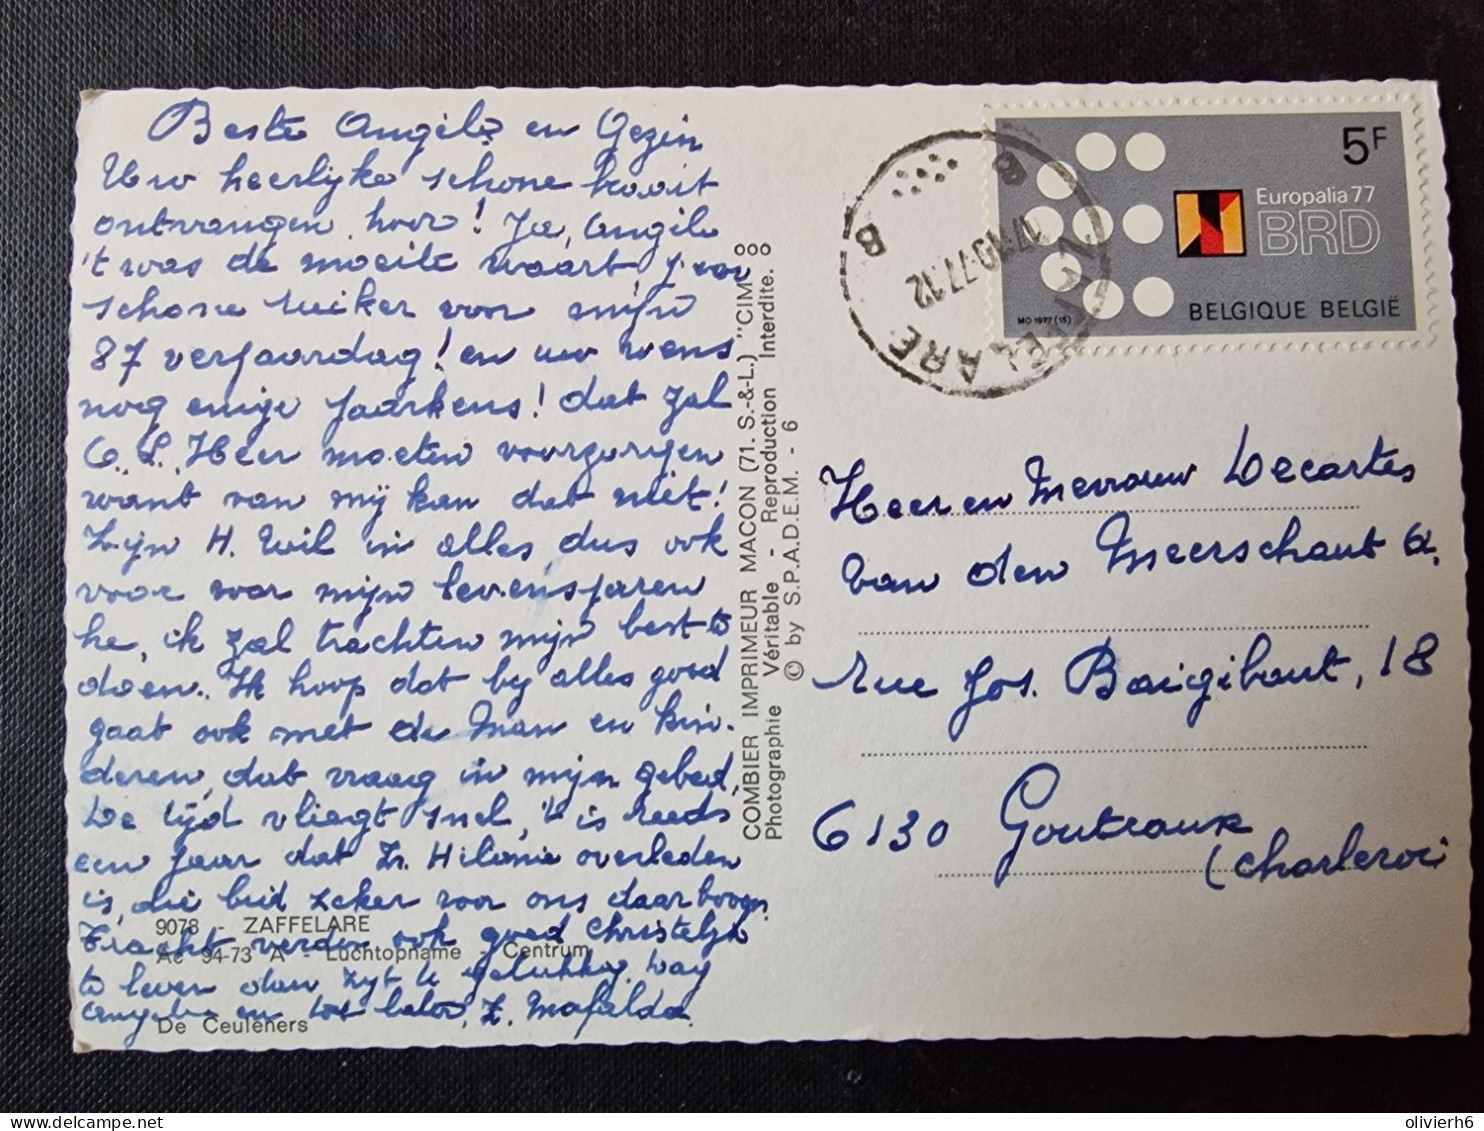 Beste Angèle en Gezin
Uw heerlijke schone kaart
ontvangen hoor! Ja, Angèle
't was de moeite waart
schone ruiker voor mijn
87 verjaardag! en uw wens
nog enige jaarkens! dat zal
O. L. Heer moeten voorzorgen
want van mij kan dat niet!
Zijn H. Wil in alles, dus ook
voor mijn levensjaren
he, ik zal trachten mijn best te
doen. Ik hoop dat bij alles goed
gaat ook met de Man en kin-
deren, dat vraag in mijn gebed,
De tijd vliegt snel, 't is reeds
een jaar dat Zr. Hilonia overleden
is, die bid zeker voor ons daarboven
Tracht verder ook goed Christelijk
te leven dan zijt te gelukkig. Dag
Angèle en tot later, Z. Mafalda
9078 - ZAFFELARE
Ac 94-73 A - Luchtopname - Centrum
De Ceuleners
COMBIER IMPRIMEUR MACON (71. S.-&-L.) "CIM"
Photographie Véritable - Reproduction Interdite.
© by S.P.A.D.E.M. - 6
B
17-10-77.12
B
ZAFFELARE
5F
Europalia 77
BRD
BELGIQUE BELGIË
MO 1977 (15)
Heer en Mevrouw Decartes
van den Meerschaut A.
rue Jos. Baigibout, 18
6130 Goutroux
(Charleroi
olivierh6